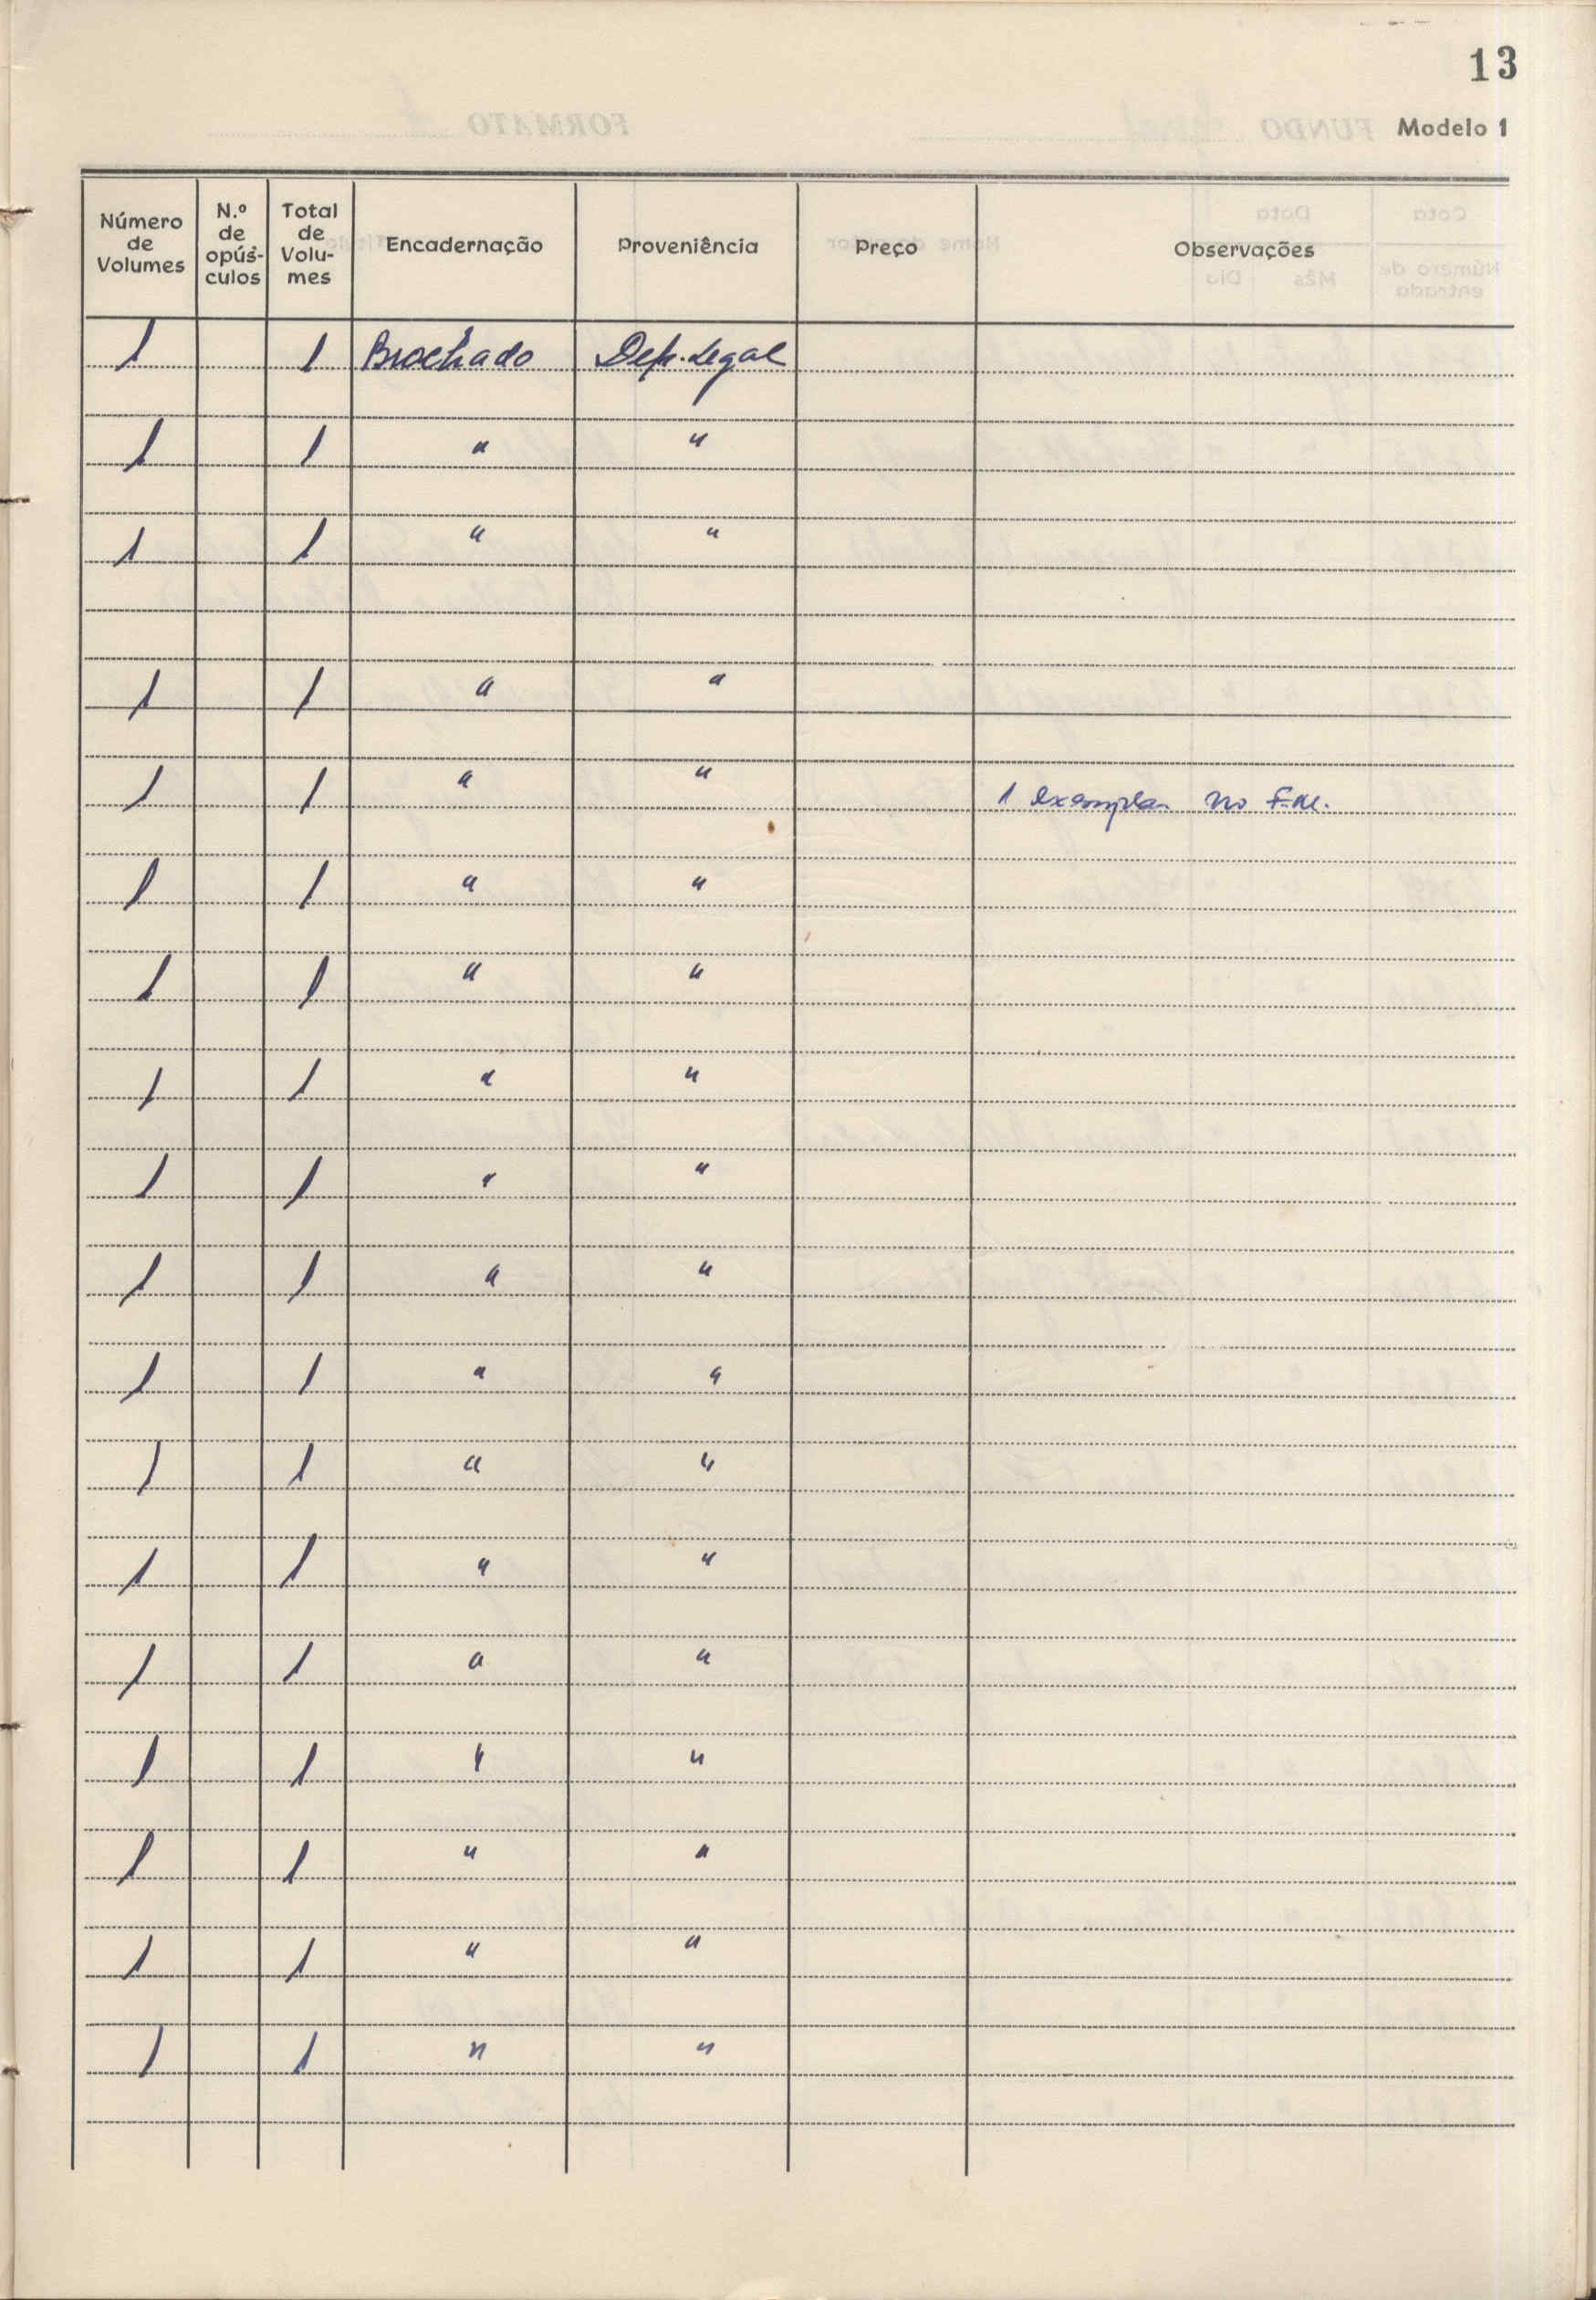 13
Modelo 1
Número de Volumes | N.º de opús-culos | Total de Volu-mes | Encadernação | Proveniência | Preço | Observações
1 | | 1 | Brochado | Dep. Legal
1 | | 1 | " | "
1 | | 1 | " | "
1 | | 1 | " | "
1 | | 1 | " | " | | 1 exemplar no
1 | | 1 | " | "
1 | | 1 | " | "
1 | | 1 | " | "
1 | | 1 | " | "
1 | | 1 | " | "
1 | | 1 | " | "
1 | | 1 | " | "
1 | | 1 | " | "
1 | | 1 | " | "
1 | | 1 | " | "
1 | | 1 | " | "
1 | | 1 | " | "
1 | | 1 | " | "